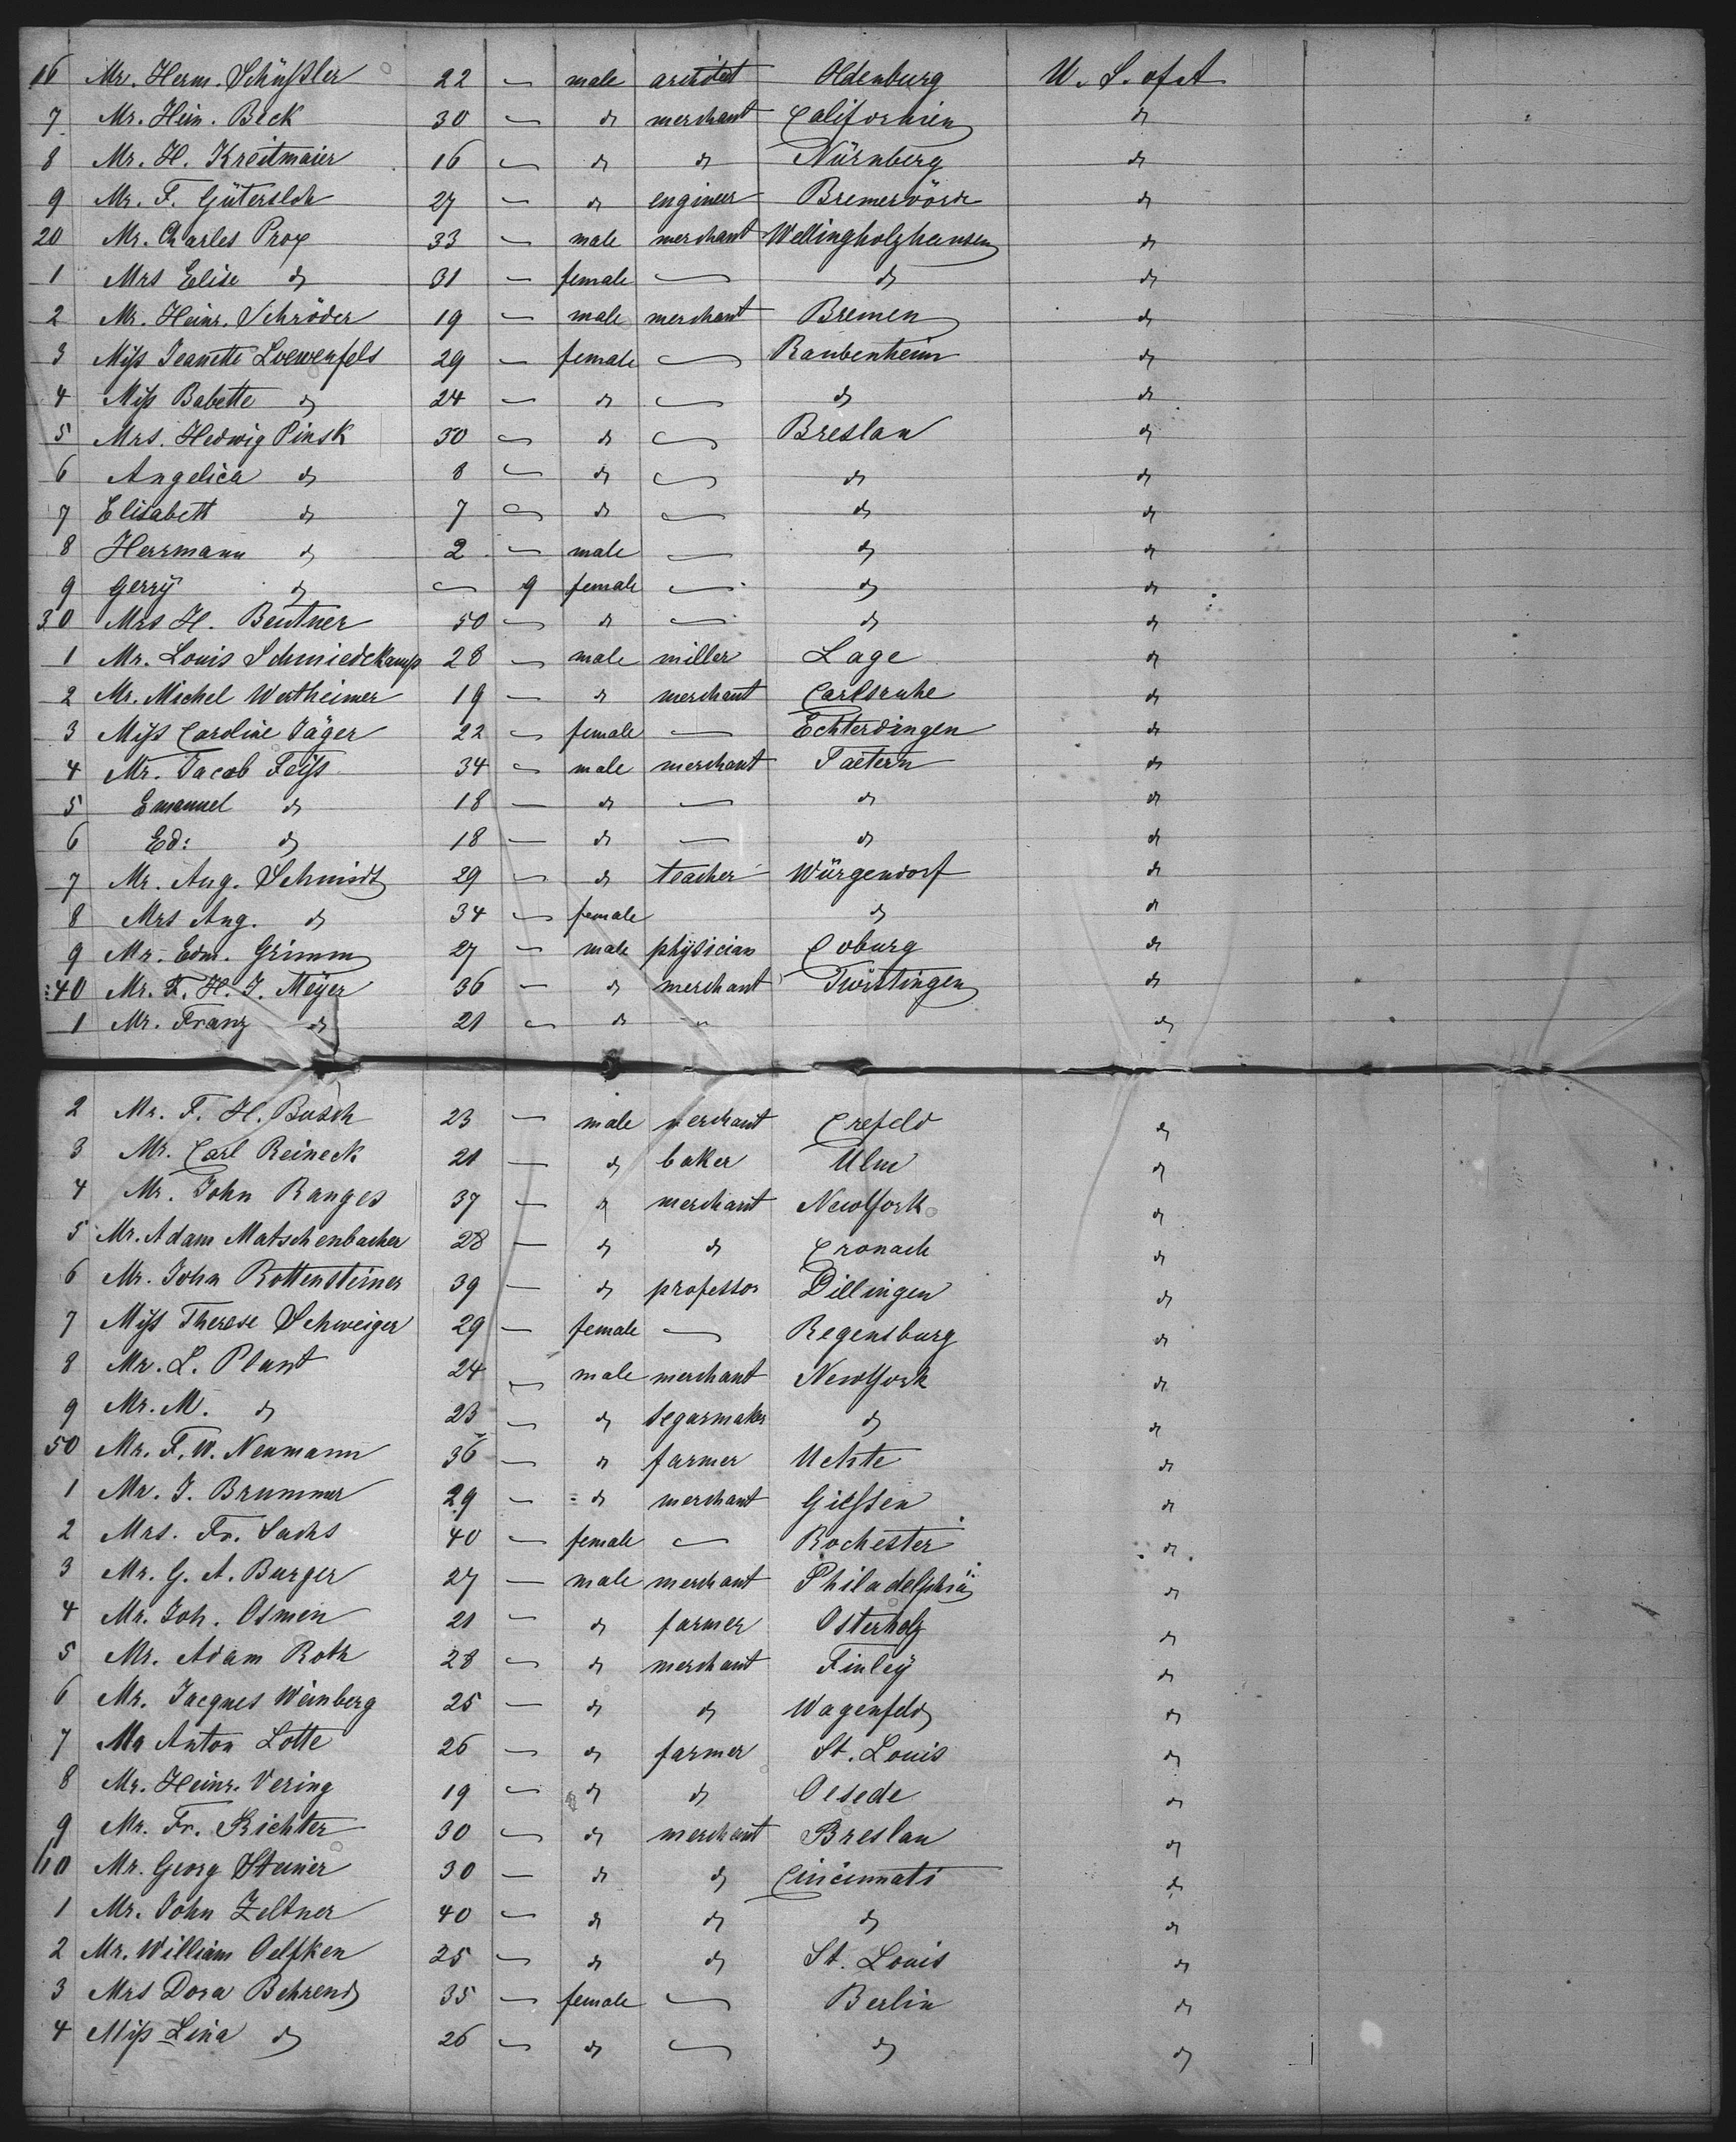 16 Mr. Herm. Schüßler 22 — male architect Oldenburg U. S. of A
7 Mr. Hein. Beck 30 — do merchant Californien do
8 Mr. H. Kreitmaier 16 — do do Nürnberg do
9 Mr. F. Gütersloh 27 — do engineer Bremervörde do
20 Mr. Charles Prox 33 — male merchant Wellingholzhausen do
1 Mrs Elise do 31 — female — do do
2 Mr. Heinr. Schröder 19 — male merchant Bremen do
3 Miss Jeanette Loewenfels 29 — female — Raubenheim do
4 Miss Babette do 24 — do — do do
5 Mrs. Hedwig Pinsk 30 — do — Breslau do
6 Angelica do 8 — do — do do
7 Elisabett do 7 — do — do do
8 Herrmann do 2 — male — do do
9 Gerry do — 9 female — do do
30 Mrs H. Beutner 50 — do — do do
1 Mr. Louis Schmiedekamp 28 — male miller Lage do
2 Mr. Michel Wertheimer 19 — do merchant Carlsruhe do
3 Miss Caroline Jäger 22 — female — Echterdingen do
4 Mr. Jacob Feiss 34 — male merchant do
5 Emanuel do 18 — do — do do
6 Ed: do 18 — do — do do
7 Mr. Aug. Schmidt 29 — do teacher Würgendorf do
8 Mrs Aug. do 34 — female do do
9 Mr. Edm. Grimm 27 — male physician Coburg do
40 Mr. F. H. J. Meyer 36 — do merchant Twistringen do
1 Mr. Franz do 21 — do " do
2 Mr. F. H. Busch 23 — male merchant Crefeld do
3 Mr. Carl Reineck 21 — do baker Ulm do
4 Mr. John Ranges 37 — do merchant NewYork do
5 Mr. Adam Matschenbacher 28 — do do Cronach do
6 Mr. John Rottensteiner 39 — do professor Dillingen do
7 Miss Therese Schweiger 29 — female — Regensburg do
8 Mr. L. Plant 24 — male merchant NewYork do
9 Mr. M. do 23 — do segarmaker do do
50 Mr. F. W. Neumann 36 — do farmer Uchte do
1 Mr. J. Brummer 29 — do merchant Gießen do
2 Mrs. Fr. Sachs 40 — female — Rochester do
3 Mr. G. A. Burger 27 — male merchant Philadelphia do
4 Mr. Joh. Osmen 21 — do farmer Osterholz do
5 Mr. Adam Roth 28 — do merchant Finley do
6 Mr. Jacques Weinberg 25 — do do Wagenfeld do
7 Mr Anton Lotte 26 — do farmer St. Louis do
8 Mr. Heinr. Vering 19 — do do Oesede do
9 Mr. Fr. Richter 30 — do merchant Breslau do
60 Mr. Georg Steiner 30 — do do Cincinnati do
1 Mr. John Zeltner 40 — do do do do
2 Mr. William Oelfken 25 — do do St. Louis do
3 Mrs Dora Behrend 35 — female — Berlin do
4 Miss Lina do 26 — do — do do